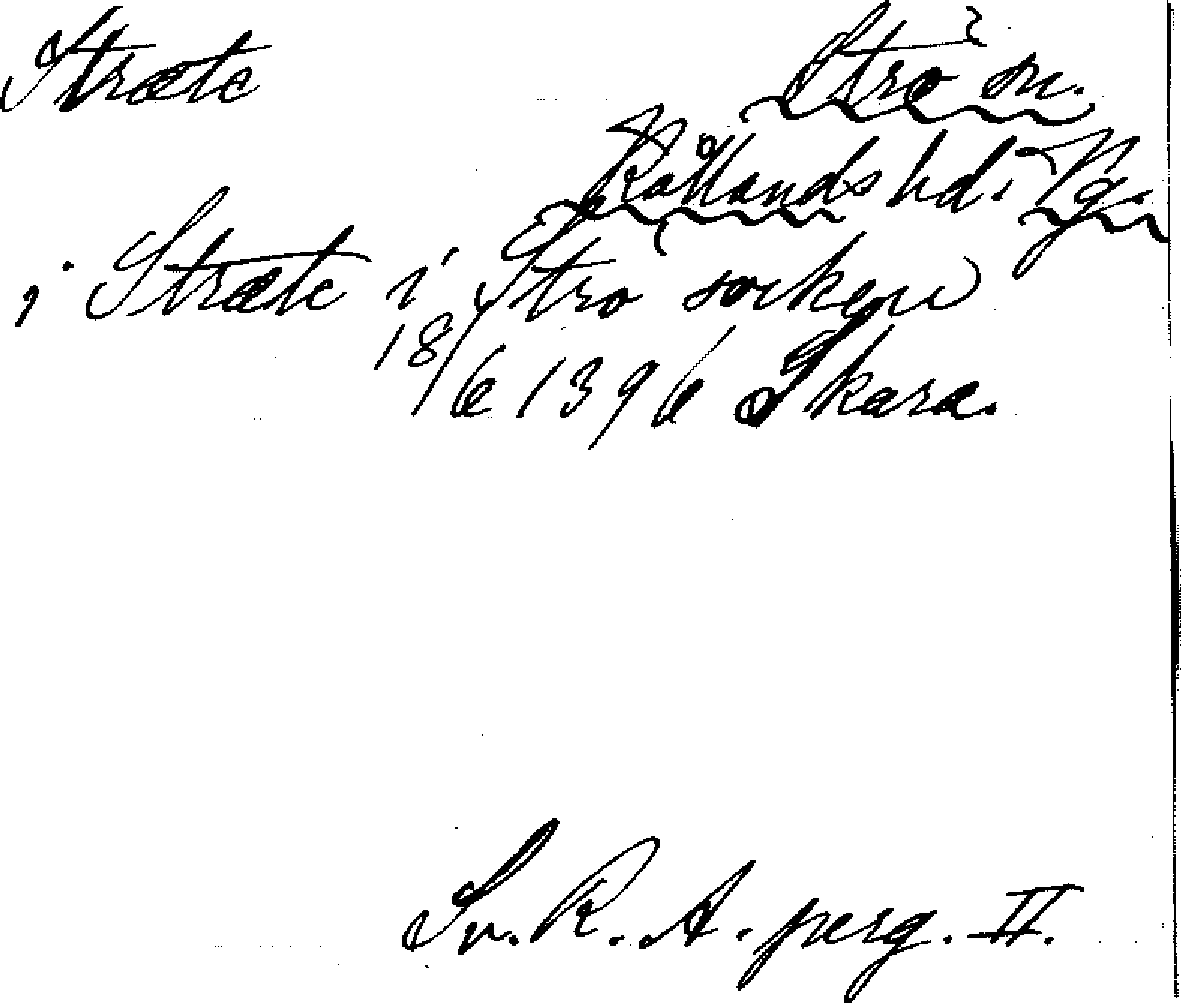 Stræte
Strö sn.
Kållands hd. Vg.
i Stræte i Stro socken
18/6 1396 Skara.
Sv. R. A. perg. II.